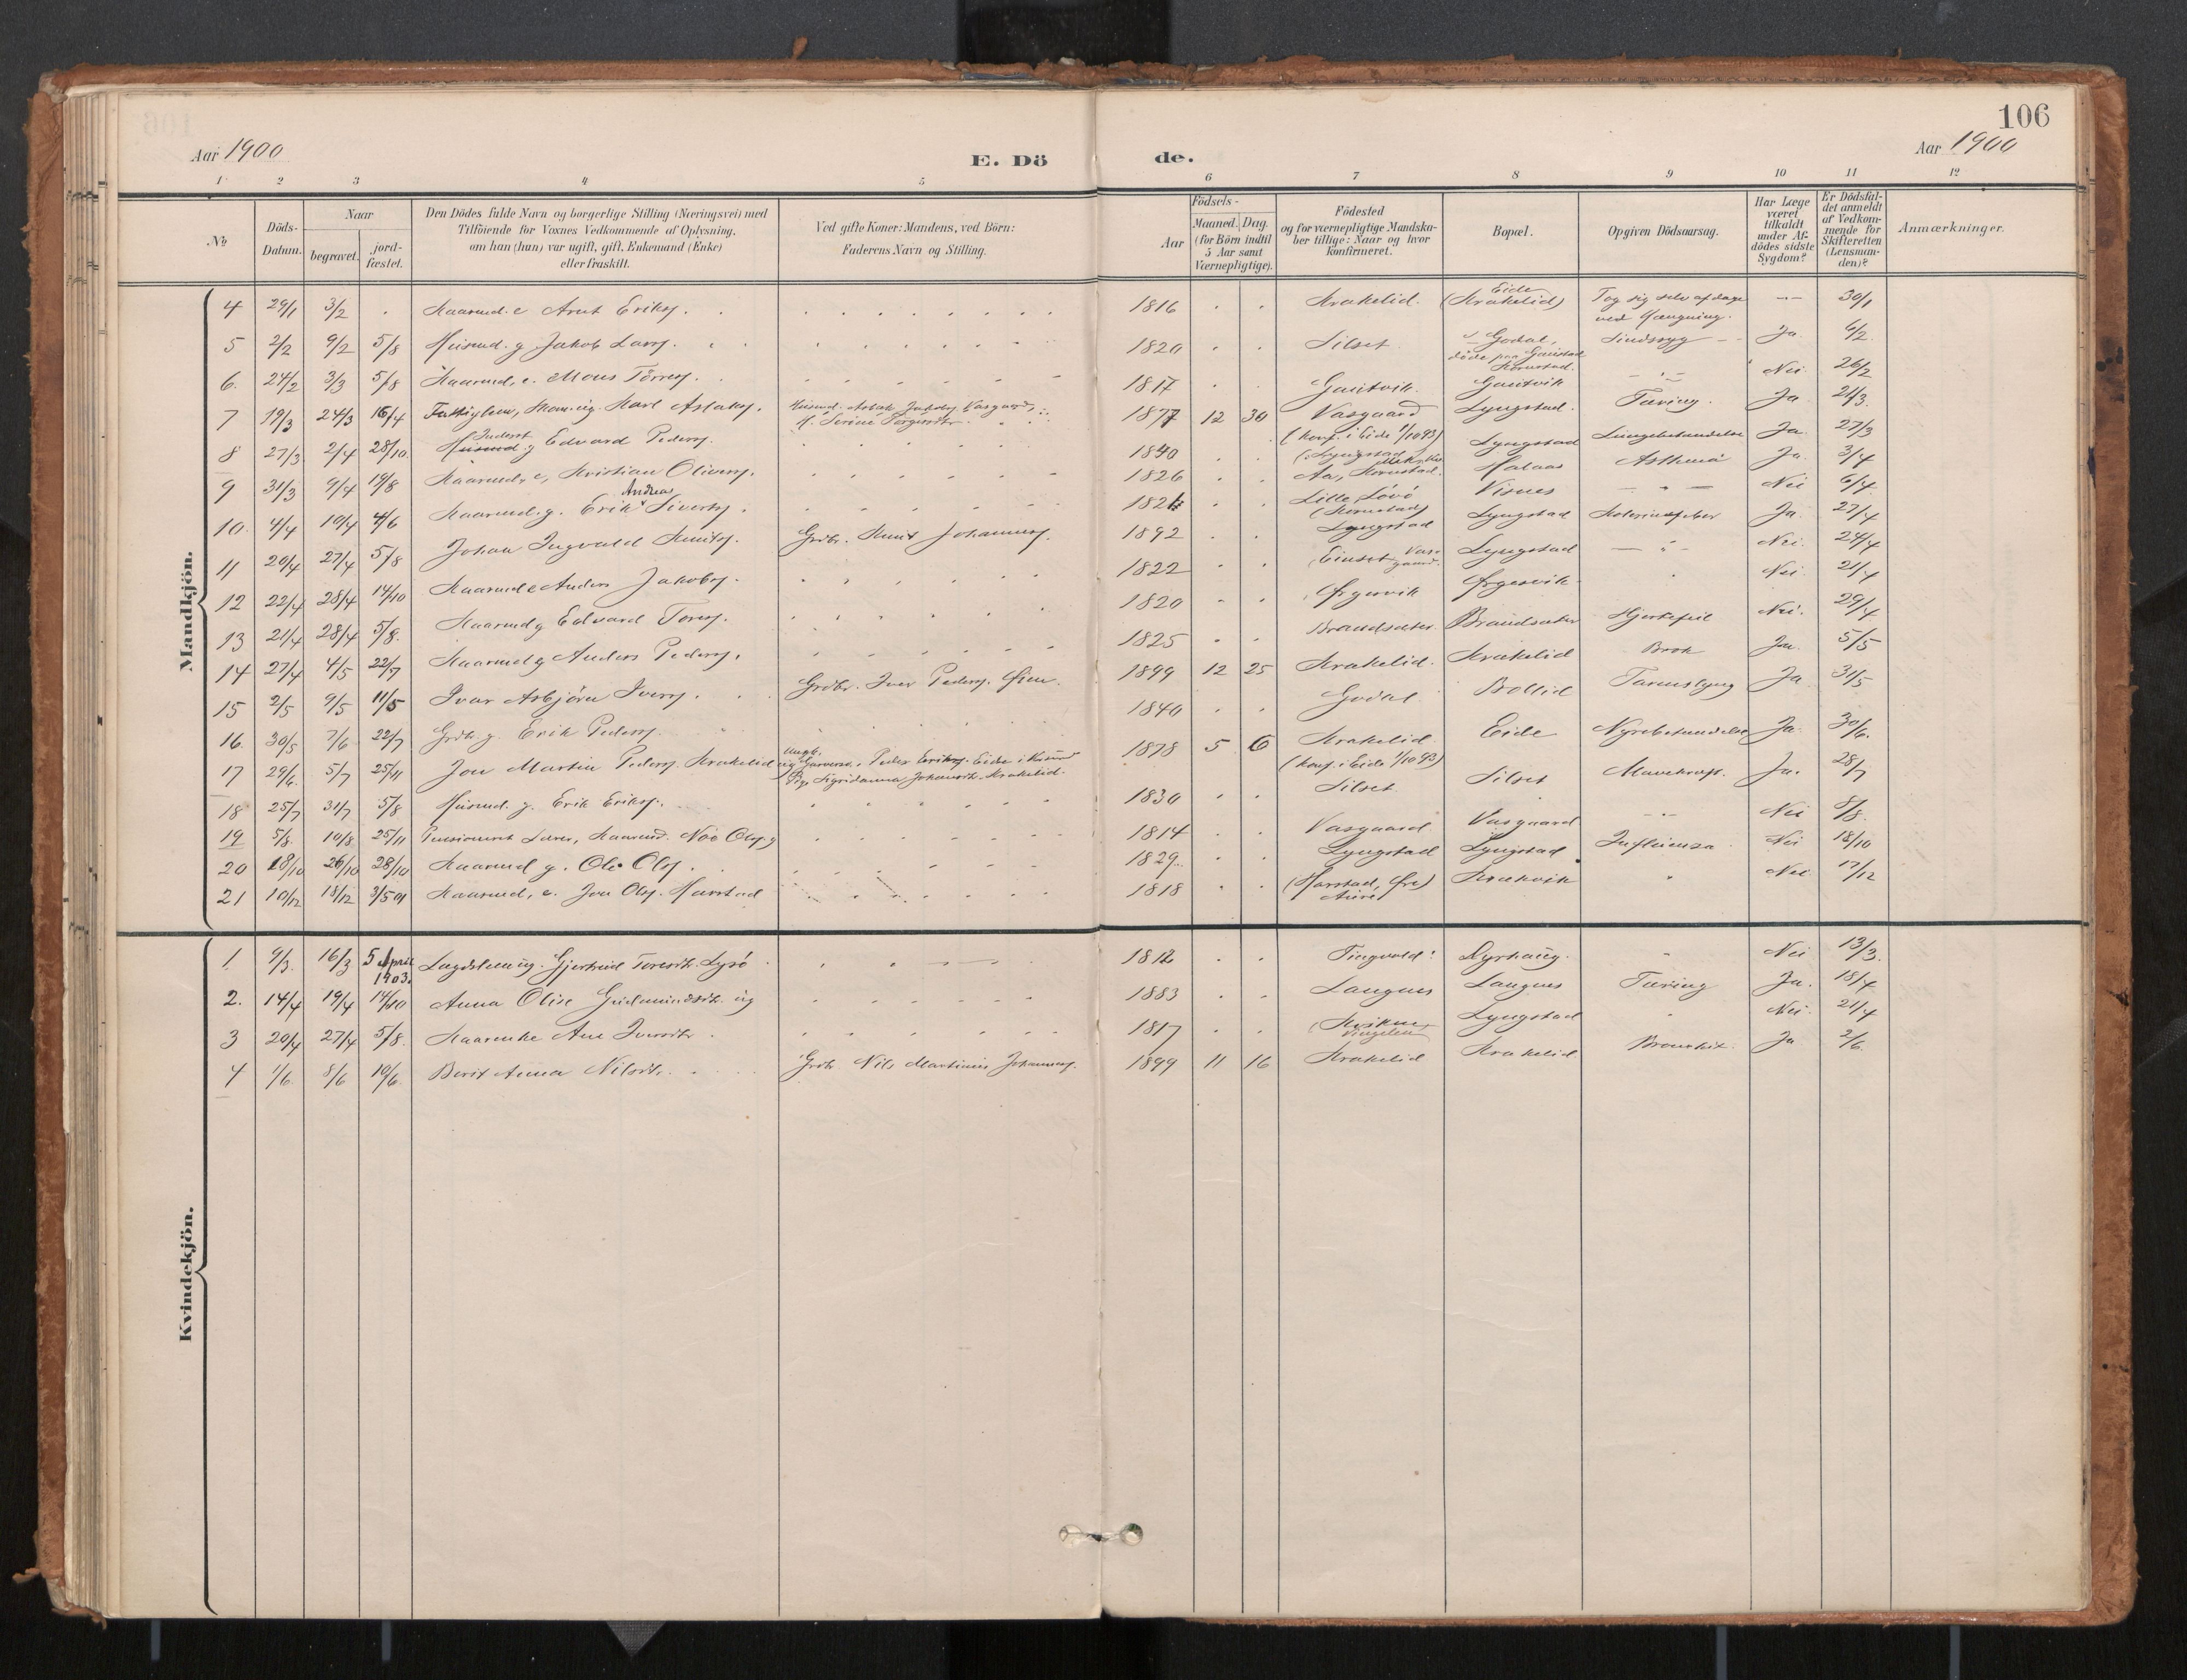 106
Aar 1900
E. Dö de.
Aar 1900
1 2 3 4 5 6 7 8 9 10 11 12
№
Döds-Datum.
Naar
begravet.
jord-fæstet.
Den Dödes fulde Navn og borgerlige Stilling (Næringsvei) med
Tilföiende for Voxnes Vedkommende af Oplysning,
om han (hun) var ugift, gift, Enkemand (Enke)
eller fraskilt.
Ved gifte Koner: Mandens, ved Börn:
Faderens Navn og Stilling.
Födsels-
Aar
Maaned. Dag.
(for Börn indtil
5 Aar samt
Værnepligtige).
Födested
og for værnepligtige Mandska-
ber tillige: Naar og hvor
konfirmeret.
Bopæl.
Opgiven Dödsaarsag.
Har Læge
været
tilkaldt
under Af-
dödes sidste
Sygdom?
Er Dödsfal-
det anmeldt
af Vedkom-
mende for
Skifteretten
(Lensman-
den)?
Anmærkninger.
Mandkjön.
4 29/1 3/2 Kaarmd. e Arnt Eriks. 1816 Krakelid. Eide (Krakelid) Tog sig selv af dage ved Hængning. 30/1
5 2/2 9/2 5/8 Husmd. g Jakob Lars. 1820 Silset Godal, döde paa Gaustad Kornstad. Sindssyg Ja 6/2
6. 24/2 3/3 5/8 Kaarmd, e. Mons Törres. 1817 Gautvik Gautvik Nei 26/2
7 19/3 24/3 16/4 Fattiglem, ug. Karl Aslaks. Husmd. Aslak Jakobs. Vasgaard, 1877 12 30 Vasgaard (konf. i Eide 1/10 93) Lyngstad. Tæring. Ja 21/3
8 27/3 2/4 28/10 Inderst Husmd g Edvard Peders. 1840 Lyngstad Lyngstad Lungebetændelse Ja 27/3
9 31/3 9/4 19/8 Kaarmd, e, Kristian Olivers. 1826 Aa, Kornstad. Halaas Asthma Ja 3/4
10. 4/4 10/4 4/6 Kaarmd. g. Erik Andreas Siverts. Lille Lövö (Kornstad) Visnes Nei 6/4
11 20/4 27/4 5/8 Johan Ingvald Knuts. Grdbr. Knut Johannes. 1892 Lyngstad Lyngstad Ja 27/4
12 22/4 28/4 14/10 Kaarmd e Anders Jakobs. 1822 Einset Vasgaard. Lyngstad Nei. 24/4
13 21/4 28/4 5/8. Kaarmd g Edvard Tores. 1820 Ørgesvik Ørgesvik Nei 21/4
14 27/4 4/5 22/7 Kaarmd g Anders Peders. 1825 Brandsæter Brandsæter Hjertefeil Nei. 29/4
15 2/5 9/5 11/5 Ivar Asbjörn Ivers. Grdbr. Iver Peders. Øien. 1899 12 25 Krakelid. Krakelid Brok Ja 5/5
16. 30/5 7/6 22/7 Grdbr. g. Erik Peders. 1840 Godal Bollid Tarmslyng Ja 31/5
17 29/6. 5/7 25/11 Jon Martin Peders. Krakelid Peder Eriks. Eide i Krsund Pige Sigridanna Johansdtr. Krakelid. 1878 5 6 Krakelid (konf. i Eide 1/10 93) Eide Nyrebetændelse Ja 30/6.
18 25/7 31/7 5/8 Husmd. g. Erik Eriks. 1830 Silset Silset Mavekræft. Ja. 28/7
19 5/8. 10/8 25/11 Pensioneret Lærer, Kaarmd. Noe Ols. g 1814 Vasgaard Vasgaard Nei 8/8.
20 18/10 26/10 28/10 Kaarmd g. Ole Ols. 1829 Lyngstad Lyngstad Influenza Nei 18/10
21 10/12 18/12 3/5 01 Kaarmd, e. Jon Ols. Harstad 1818 (Harstad, Øre) Aure Krakvik Nei 17/12
Kvindekjön.
1 9/3. 16/3 5 April 1903. Lægdslem ug. Gjertrud Toresdtr. Lysö 1812 Tingvold Dyrhaug. Nei 13/3.
2. 14/4 19/4 14/10 Anna Olise Gudmundsdtr. ug 1883 Langnes Langnes Tæring Ja. 18/4
3 20/4 27/4 5/8. Kaarenke Ane Iversdtr. 1817 Lyngstad Nei. 21/4
4 1/6. 8/6 10/6. Berit Anna Nilsdtr. Grdbr. Nils Martinus Johannes. 1899 11 16 Krakelid Krakelid Bronchit. Ja 2/6.